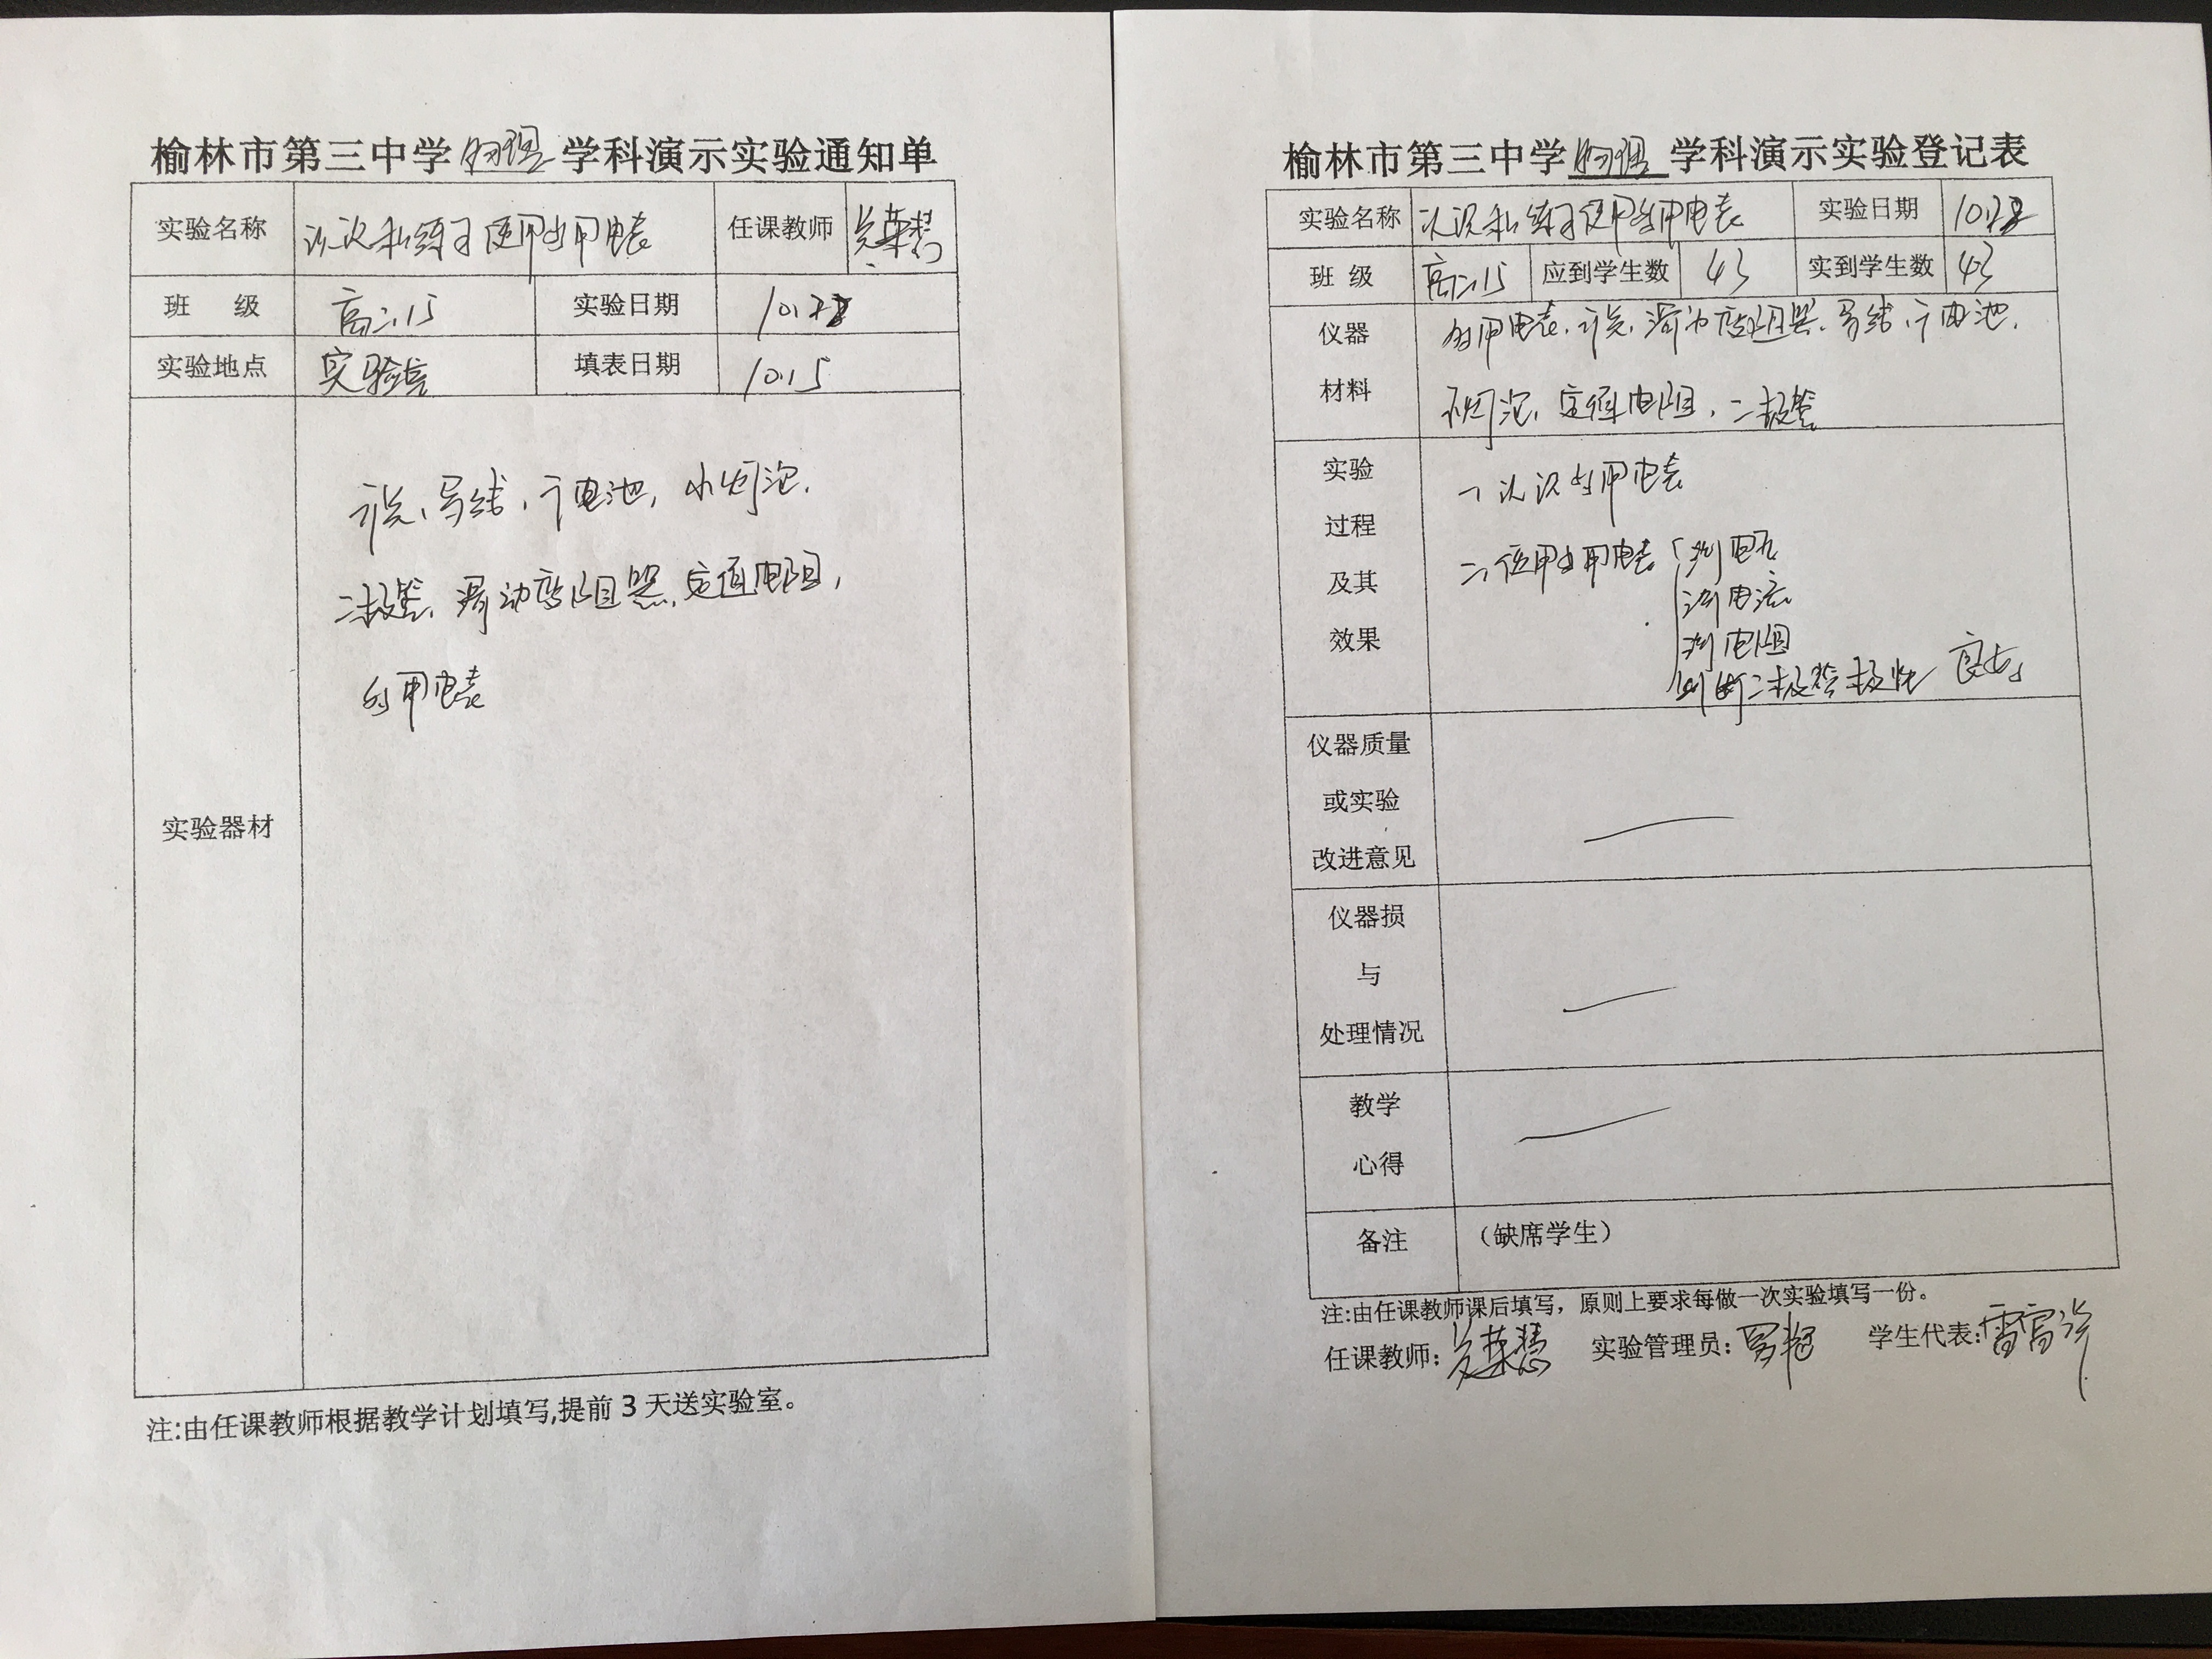 榆林市第三中学物理学科演示实验通知单
实验名称 认识和练习使用多用电表 任课教师
班 级 高二.15 实验日期
实验地点 实验室 填表日期 10.15
实验器材
开关、导线、干电池,小灯泡.
二极管、滑动变阻器、定值电阻,
多用电表
注:由任课教师根据教学计划填写,提前3天送实验室。
榆林市第三中学物理学科演示实验登记表
实验名称 认识和练习使用多用电表 实验日期
班 级 高二.15 应到学生数 43 实到学生数 43
仪器
材料
多用电表、开关、滑动变阻器、导线、干电池、
小灯泡、定值电阻、二极管
实验
过程
及其
效果
一、认识多用电表
二、使用多用电表 测电压
测电流
测电阻
判断二极管极性 良好
仪器质量
或实验
改进意见
仪器损
与
处理情况
教学
心得
备注 (缺席学生)
注:由任课教师课后填写,原则上要求每做一次实验填写一份。
任课教师: 实验管理员: 学生代表: